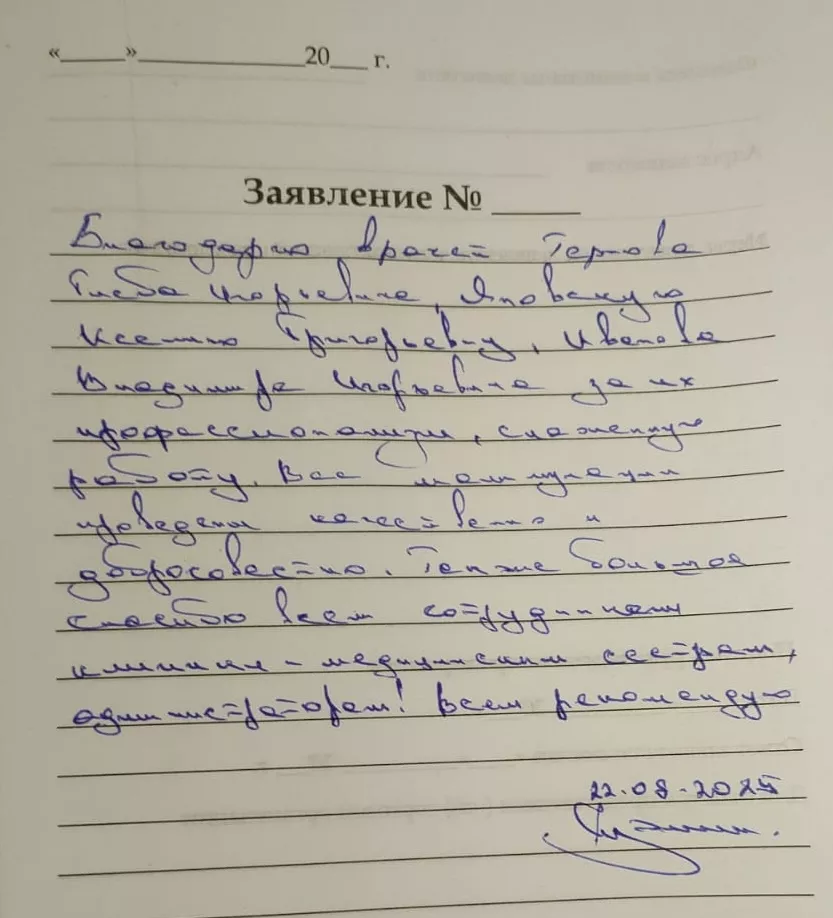 «____»____________20___ г.
Заявление № _____
Благодарю врачей Тернова
Глеба Игорьевича, Яновскую
Ксению Григорьевну, Иванова
Владимира Игорьевича за их
профессионализм, слаженную
работу. Все манипуляции
проведены качественно и
добросовестно. Также большое
спасибо всем сотрудникам
клиники - медицинским сестрам,
администраторам! Всем рекомендую
22.08.2025